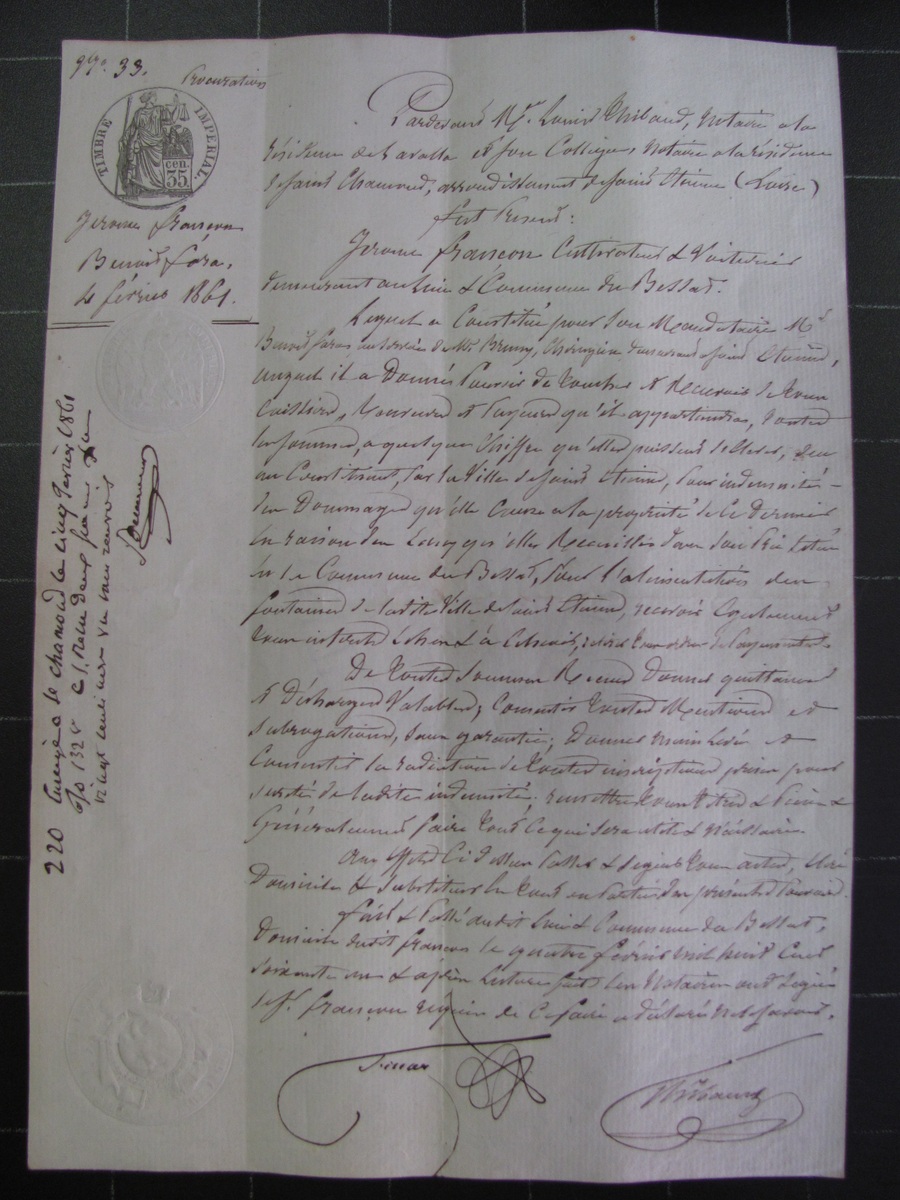 33.
Procuration
TIMBRE IMPERIAL.
35 cen.
Jerome françon
Benoit fora,
4 février 1861.
Pardevant Me Louis Thibaud, Notaire a la
résidence de Lavalla et son Collègue Notaire a la résidence
de Saint Chamond, arrondissement de Saint Etienne (Loire)
fut Present:
Jerome françon Cultivateur & Voiturier
demeurant au lieu & Commune du Bessat.
Lequel a Constitué pour son Mandataire Mr
Benoit foras, de Mr Chirurgien demeurant a Saint Etienne,
auquel il a Donné Pouvoir de toucher et Recevoir de tous
Caissiers, Receveurs et Payeurs qu'il appartiendra, toutes
les sommes, a quelque Chiffre qu'elles puissent s'élever, dues
au Constituant, par la Ville de Saint Etienne, pour indemnité
des Dommages qu'elle Cause a la propriété de Ce Dernier
en raison des Eaux qu'elle Recueille dans son Pré situé
en la Commune du Bessat, pour l'alimentation des
fontaines de ladite Ville de Saint Etienne, recevoir également
tous interets échus & à échoir,
De toutes sommes Recues Donner quittances
et Décharges Valables, Consentir toutes Mentions et
subrogations, sans garantie; Donner main levée et
Consentir la radiation de toutes inscriptions prises pour
sureté de ladite indemnité. remettre tous titres & Pièces &
Généralement faire tout Ce qui sera utile & Nécessaire
Aux effets Ci dessus Passer & signer tous actes, élire
Domicile & Substituer en tout ou Partie des présents Pouvoirs
fait & Passé audit lieu & Commune du Bessat,
Domicile dudit françon le quatre février mil huit Cent
soixante un & après lecture faite les Notaires ont Signé
le Sr françon requis de Ce faire a déclaré ne le savoir.
Finaz
Thibaud
220 Enregistré a St chamond le cinq février 1861
fo 132 v c. Reçu deux francs
vingt centimes